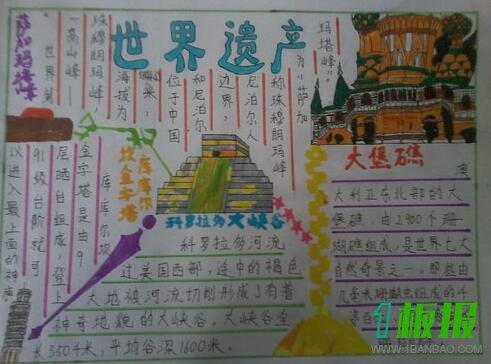 世界遗产
萨加玛塔峰
世界第
一高山峰——
珠穆朗玛峰,
海拔为
米,
位于中国
和尼泊尔
边界,
尼泊尔人
称珠穆朗玛峰
为“萨加
玛塔峰”。
库库尔
坎金字塔
库库尔坎
金字塔是由9
层晒台组成,登上
91级台阶就可
以进入最上面的神庙
科罗拉多大峡谷
科罗拉多河流
过美国西部,途中的褐色
大地被河流切削形成了有着
神奇地貌的大峡谷,大峡谷全
长350千米,平均谷深1600米。
大堡礁
澳
大利亚东北部的大
堡礁,由2900个珊
瑚礁组成,是世界七大
自然奇景之一,那些由
几毫米珊瑚虫组成的千
姿百
1板报
WWW.1BANBAO.COM